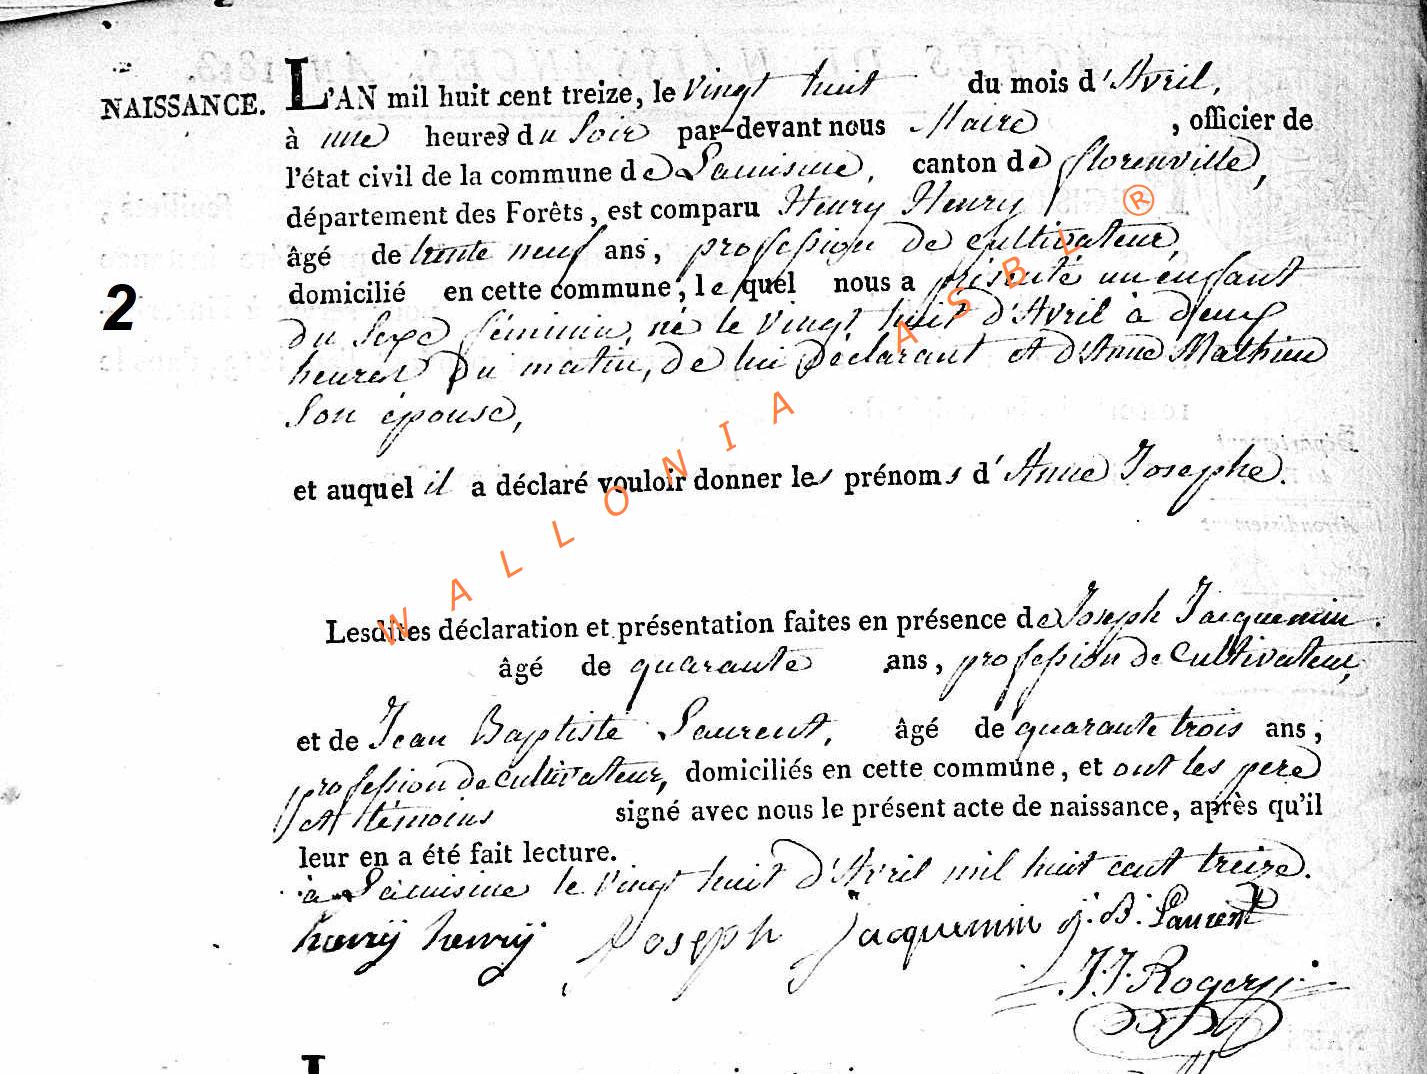 NAISSANCE. L'AN mil huit cent treize, le Vingt huit du mois d'Avril,
à une heures du Soir par-devant nous Maire , officier de
l'état civil de la commune de Lamisine, canton de florenville,
département des Forêts, est comparu Henry Henry
âgé de trente neuf ans, profession de cultivateur,
2
domicilié en cette commune, lequel nous a présenté un enfant
du Sexe féminin, né le Vingt huit d'Avril à deux
heures Du matin, de lui Déclarant et d'Anne Mathieu
Son épouse,
et auquel il a déclaré vouloir donner les prénoms d'Anne Josephe.
WALLONIA ASBL ®
Lesdites déclaration et présentation faites en présence de Joseph Jacquemin
âgé de quarante ans, profession de Cultivateur,
et de Jean Baptiste Laurent, âgé de quarante trois ans,
profession de cultivateur, domiciliés en cette commune, et ont les pere
et témoins signé avec nous le présent acte de naissance, après qu'il
leur en a été fait lecture.
à Lamisine le Vingt huit d'Avril mil huit cent treize.
henrÿ henrÿ Joseph Jacquemin j. B. Laurent
J. J. Rogery